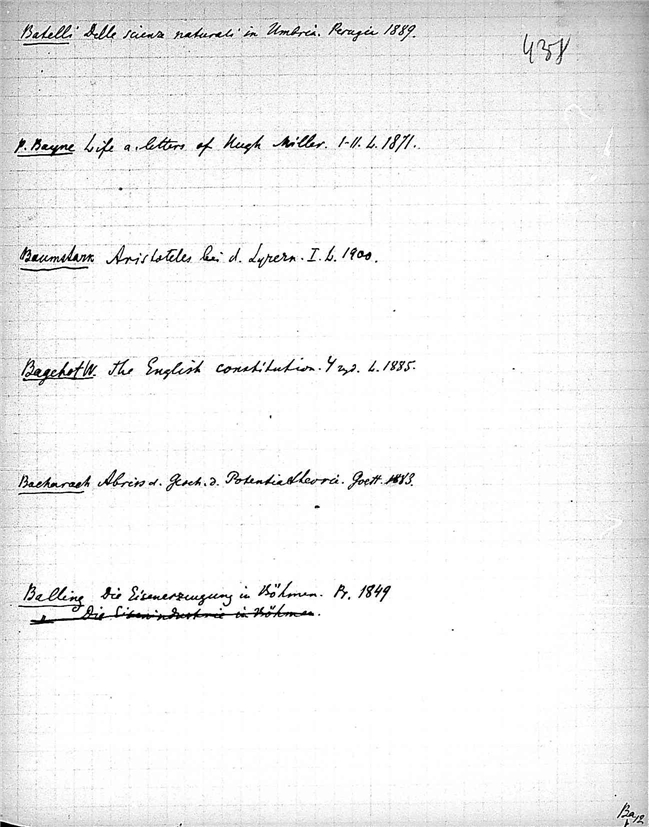 Batelli Delle scienze naturali in Umbria. Perugia 1889.
438
P. Bayne Life a. letters of Hugh Miller. I-II. L. 1871.
Baumstark Aristoteles bei d. Syrern. I. L. 1900.
Bagehot W. The English constitution. 4 wyd. L. 1885.
Bacharach Abriss d. Gesch. d. Potentialtheorie. Goett. 1883.
Balling Die Eisenerzeugung in Böhmen. Pr. 1849
Die Eisenindustrie in Böhmen.
Ba